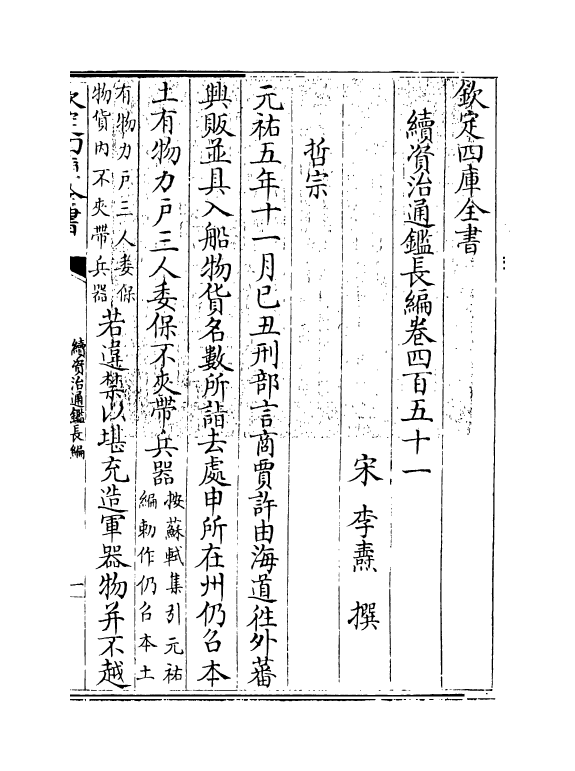 欽定四庫全書
續資治通鑑長編卷四百五十一
宋 李燾 撰
哲宗
元祐五年十一月己丑刑部言商賈許由海道徃外蕃
興販並具入船物貨名數所詣去處申所在州仍召本
土有物力戶三人委保不夾帶兵器
按蘇軾集引元祐
編勅作仍召本土
有物力戶三人委保
物貨內不夾帶兵器
若違禁以堪充造軍器物并不越
欽定四庫全書
續資治通鑑長編
一